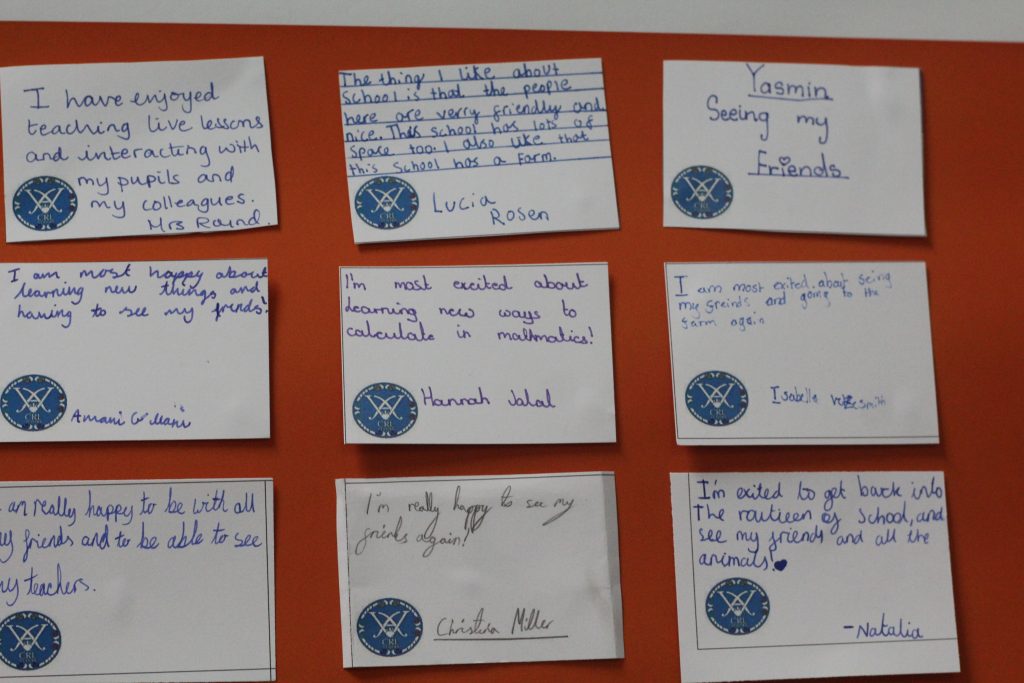 I have enjoyed
teaching live lessons
and interacting with
my pupils and
my colleagues.
Mrs Round.
CRL
The thing I like about
School is that the people
here are verry friendly and
nice. This school has lots of
space too. I also like that
this School has a farm.
Lucia
Rosen
CRL
Yasmin
Seeing my
Friends
CRL
I am most happy about
learning new things and
having to see my friends!
Amani
CRL
I'm most excited about
learning new ways to
calculate in mathmatics!
Hannah Jalal
CRL
I am most exited about seing
my freinds and going to the
farm again
Isabella
CRL
am really happy to be with all
my friends and to be able to see
my teachers.
CRL
I'm really happy to see my
friends again!
Christina Miller
CRL
I'm exited to get back into
The routieen of School, and
see my friends and all the
animals!
-Natalia
CRL